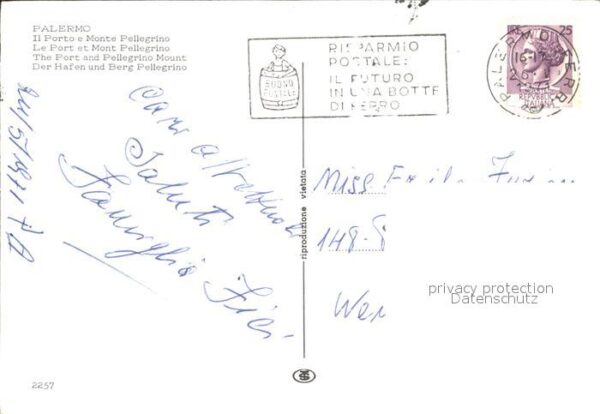 PALERMO
Il Porto e Monte Pellegrino
Le Port et Mont Pellegrino
The Port and Pellegrino Mount
Der Hafen und Berg Pellegrino
RISPARMIO
POSTALE:
IL FUTURO
IN UNA BOTTE
DI FERRO
BUONO
POSTALE
25
PALERMO FERR
16-17
26
24/5/1971 PA
Cari affettuosi
saluti
Famiglia
riproduzione vietata
Miss
148-8
Wer
privacy protection
Datenschutz
2257